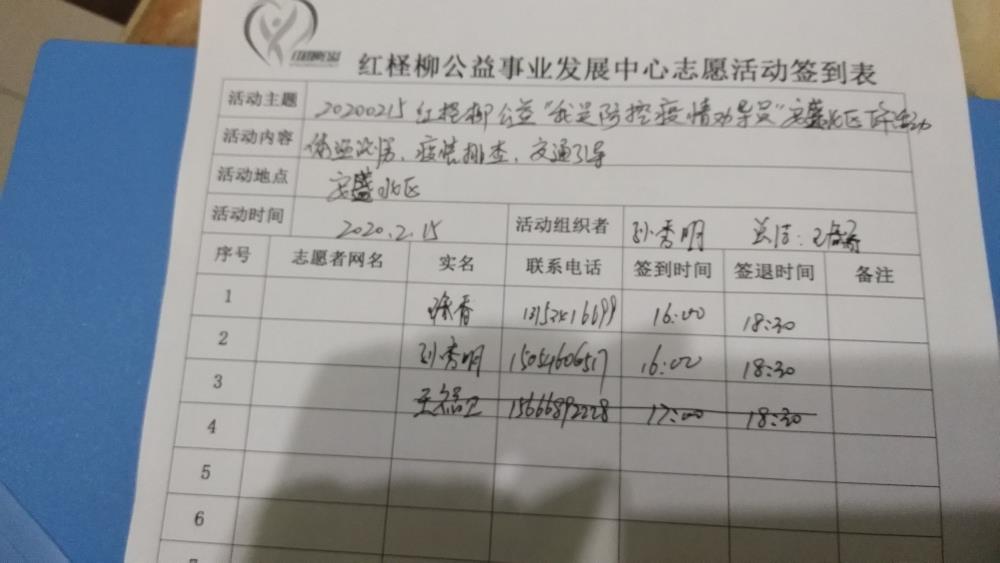 红柽柳公益事业发展中心志愿活动签到表
活动主题 20200215红柽柳公益"我是防控疫情劝导员"安盛北区
活动内容 体温测量、疫情排查、交通引导
活动地点 安盛北区
活动时间 2020.2.15 活动组织者 孙秀明 总结:
序号 志愿者网名 实名 联系电话 签到时间 签退时间 备注
1 徐香 13752416699 16:00 18:30
2 孙秀明 15054606517 16:00 18:30
3 15666892228 17:00 18:30
4
5
6
7